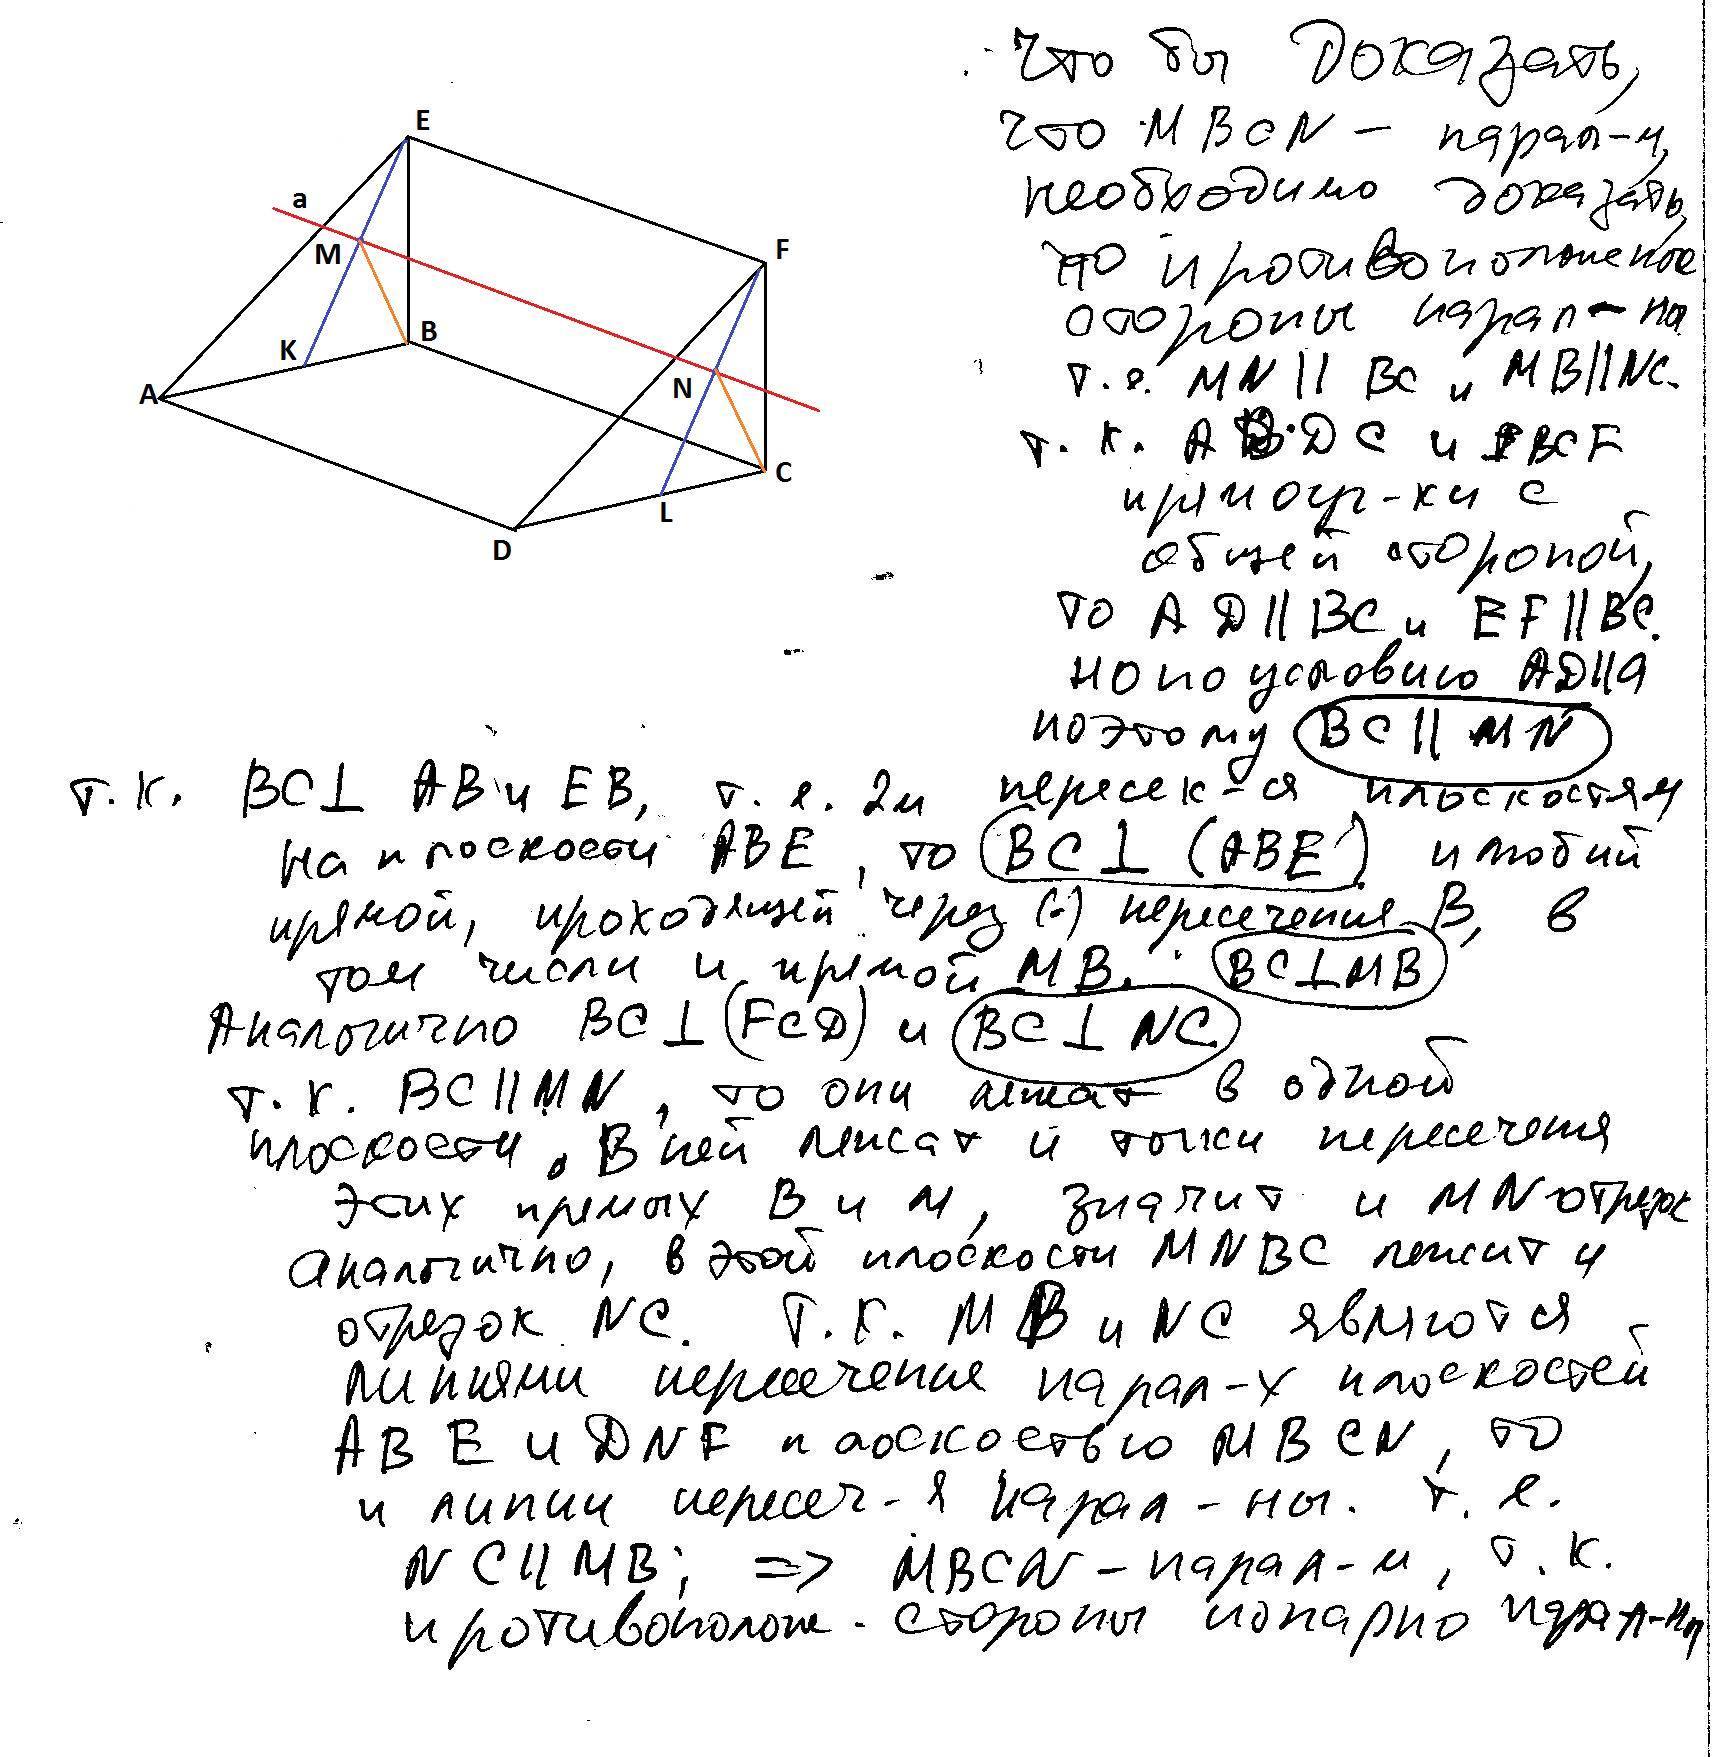 E
a
M
F
B
K
N
A
C
L
D
Что бы доказать,
что MBCN – парал-м,
необходимо доказать,
что противоположеные
стороны парал-ны
т.е. MN || BC и MB||NC.
т.к. ABDC и EBCF
прямоуг-ки с
общей стороной,
то AD||BC и EF||BC.
но по условию AD||a
поэтому BC || MN
т.к. BC⊥ AB и EB, т.е. 2м пересек-ся плоскостям
на плоскости ABE, то BC⊥(ABE) и любий
прямой, проходящей через (·) пересечения B, в
том числи и прямой MB. BC⊥MB
Аналогично BC⊥(FCD) и BC⊥NC
т.к. BC||MN, то они лежат в одной
плоскости. В ней лежат и точки пересечения
этих прямых B и M, значит и MN отрезок
аналогично, в этой плоскости MNBC лежит и
отрезок NC. Т.к. MB и NC являются
линиями пересечения парал-х плоскостей
ABE и DNF плоскостью MBCN, то
и линии пересеч-я парал-ны. т.е.
NC||MB; => MBCN – парал-м, т.к.
противополож. стороны попарно парал-ны